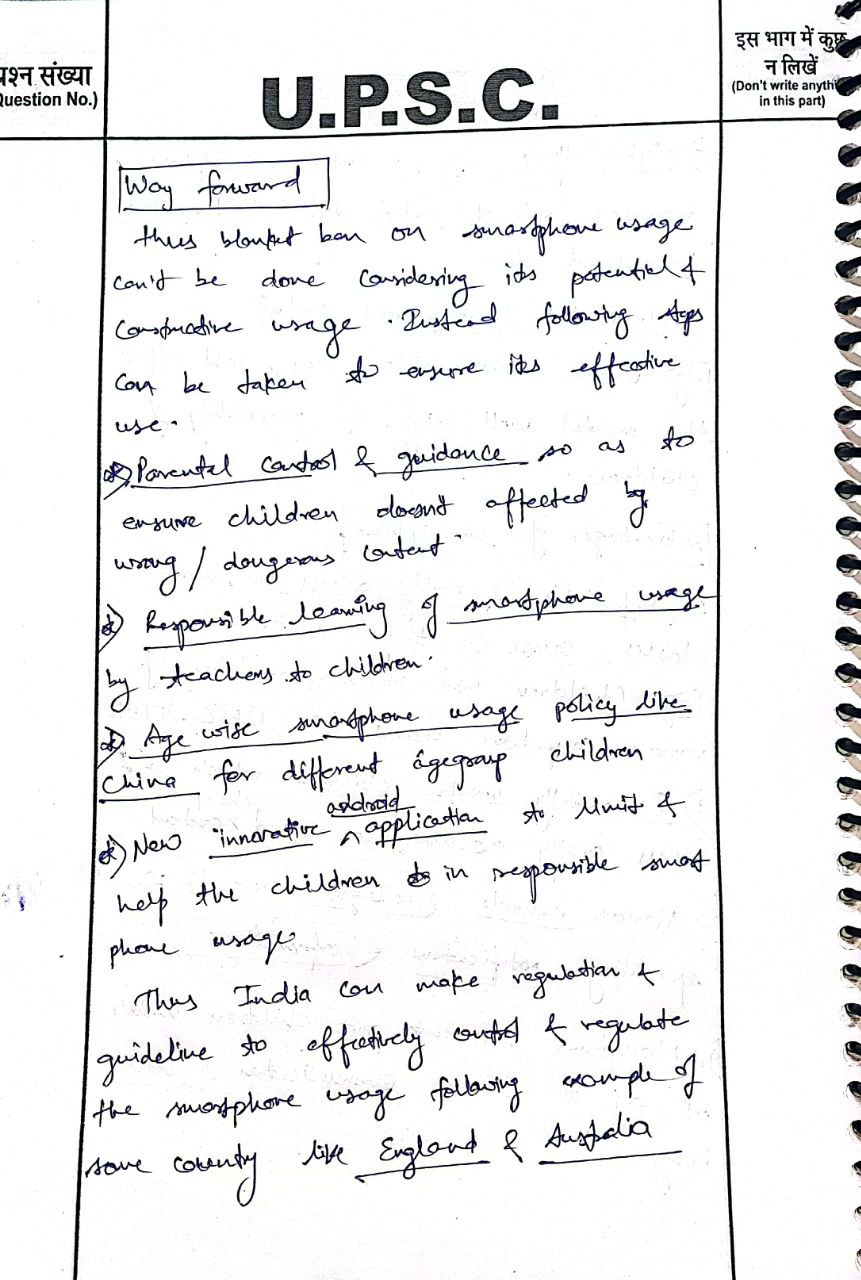 प्रश्न संख्या
(Question No.)
U.P.S.C.
इस भाग में कुछ
न लिखें
(Don't write anythi
in this part)
Way forward
Thus blanket ban on smartphone usage
can't be done considering its potential &
constructive usage. Instead following steps
can be taken to ensure its effective
use.
*) Parental control & guidance so as to
ensure children doesn't affected by
wrong / dangerous content.
*) Responsible learning of smartphone usage
by teachers to children.
*) Age wise smartphone usage policy like
China for different agegroup children
*) New innovative android application to limit &
help the children in responsible smart
phone usage
Thus India can make regulation &
guideline to effectively control & regulate
the smartphone usage following example of
some country like England & Australia